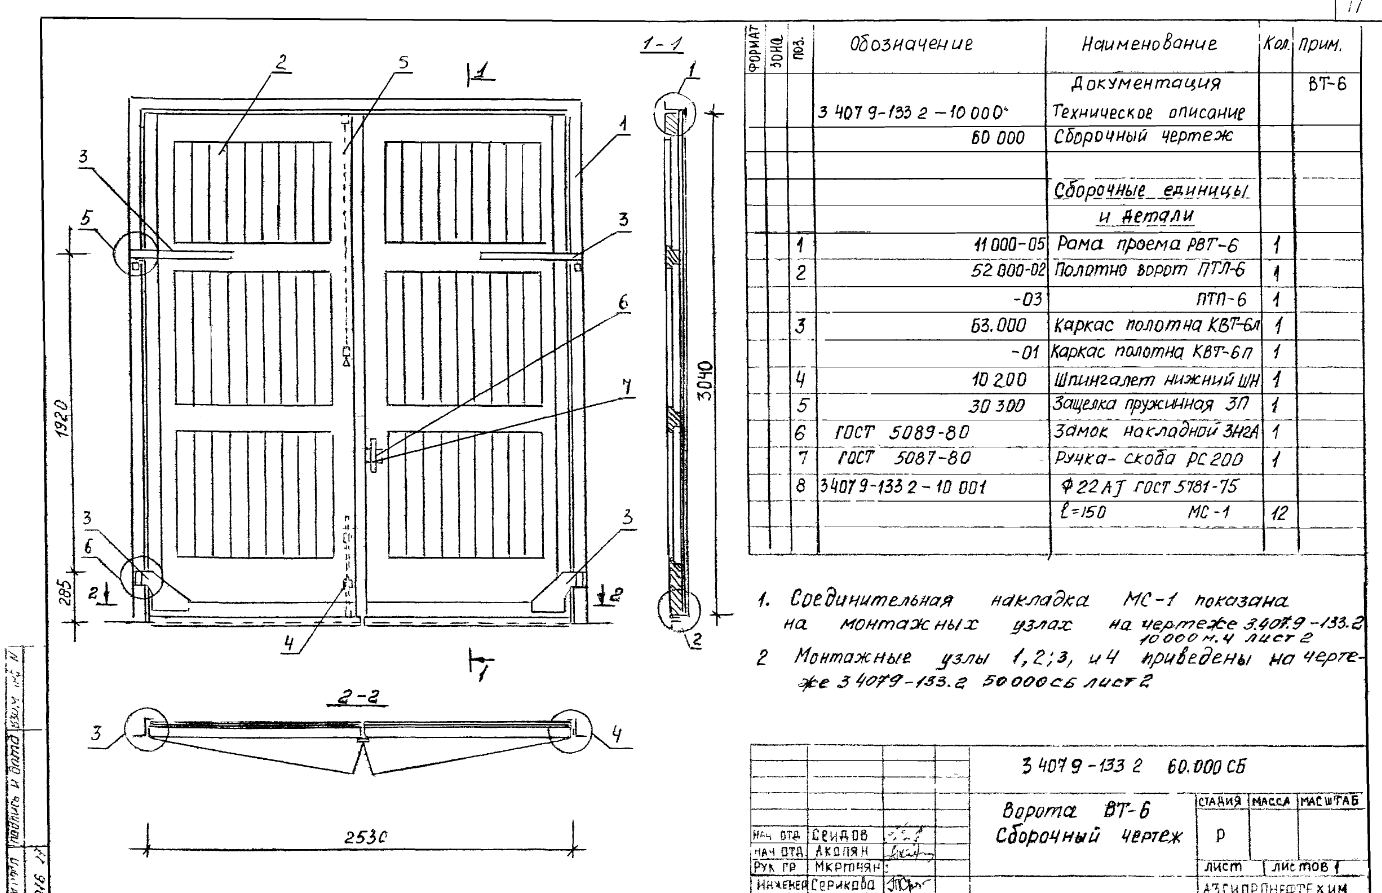 17
1-1
2
5
1
1
1
3
5
3
6
7
3
6
3
2
2
4
1
2
1920
285
3040
2-2
3
4
2530
ФОРМАТ ЗОНА ПОЗ. Обозначение Наименование Кол. Прим.
Документация ВТ-6
3 407 9-133 2-10 000 Техническое описание
60 000 Сборочный чертеж
Сборочные единицы
и детали
1 11 000-05 Рама проема РВТ-6 1
2 52 000-02 Полотно ворот ПТЛ-6 1
-03 ПТП-6 1
3 63.000 Каркас полотна КВТ-6л 1
-01 Каркас полотна КВТ-6п 1
4 10 200 Шпингалет нижний ШН 1
5 30 300 Защелка пружинная ЗП 1
6 ГОСТ 5089-80 Замок накладной ЗН2А 1
7 ГОСТ 5087-80 Ручка-скоба РС200 1
8 3 407 9-133 2-10 001 Ф 22 АI ГОСТ 5781-75
ℓ=150 МС-1 12
1. Соединительная накладка МС-1 показана
на монтажных узлах на чертеже 3.407.9-133.2
10 000 м.ч лист 2
2 Монтажные узлы 1,2;3, и 4 приведены на черте-
же 3 407 9-133.2 50 000 СБ лист 2
3 407 9-133 2 60.000 СБ
Ворота ВТ-6
Сборочный чертеж
СТАДИЯ МАССА МАСШТАБ
Р
ЛИСТ ЛИСТОВ 1
НАЧ ОТД Сеидов
НАЧ ОТД Акопян
РУК ГР Мкртчян
ИНЖЕНЕР Серикова
АЗГИПРОНЕФТЕХИМ
подпись и дата
взам инв N